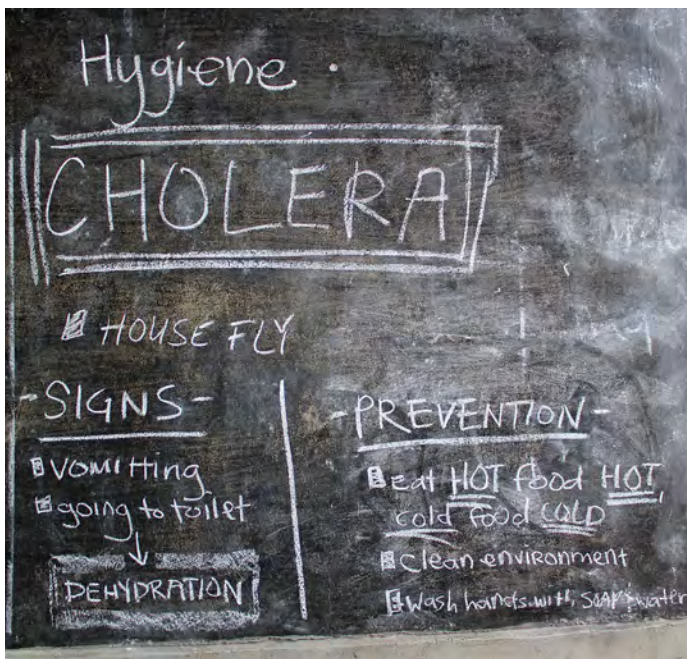 Hygiene.
CHOLERA
HOUSE FLY
-SIGNS-
vomitting
going to toilet
↓
DEHYDRATION
-PREVENTION-
eat HOT food HOT,
cold food COLD
clean environment
Wash hands with SOAP & water